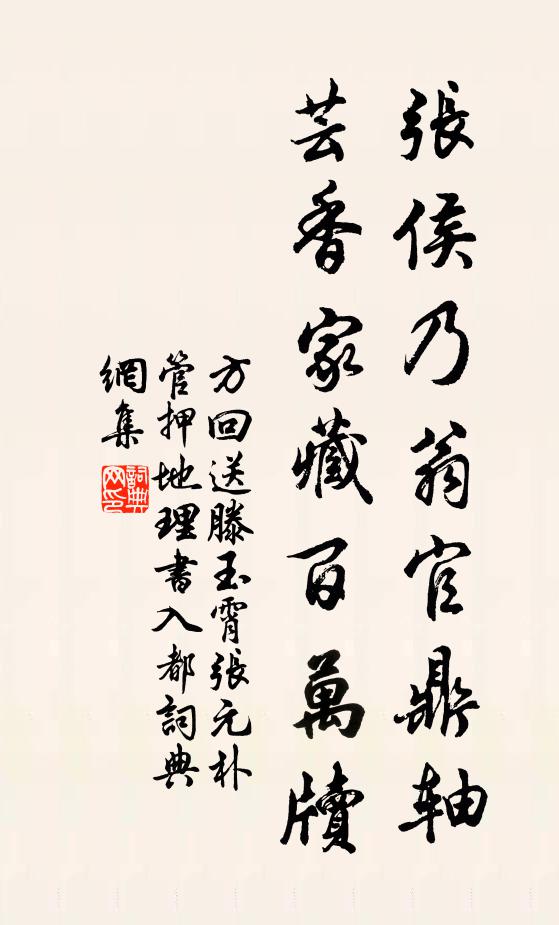 張侯乃翁官鼎軸
芸香家藏百萬牘
方回送滕玉霄張元朴
管押地理書入都詞典
網集
詞典
网印